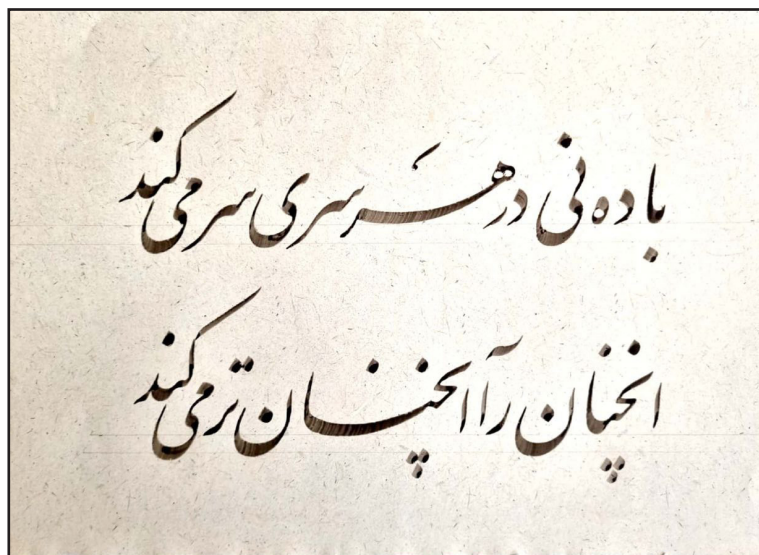 باده نی در هر سری سر می کند
انچنان را آنچنان تر می کند